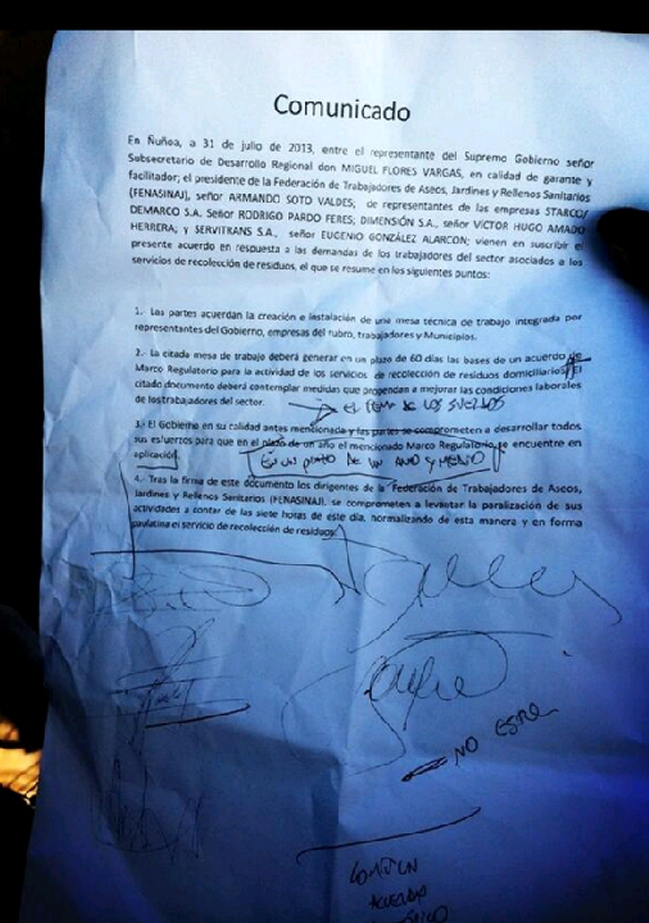 Comunicado
En Ñuñoa, a 31 de julio de 2013, entre el representante del Supremo Gobierno señor
Subsecretario de Desarrollo Regional don MIGUEL FLORES VARGAS, en calidad de garante y
facilitador; el presidente de la Federación de Trabajadores de Aseos, Jardines y Rellenos Sanitarios
(FENASINAJ), señor ARMANDO SOTO VALDES; de representantes de las empresas STARCO/
DEMARCO S.A. Señor RODRIGO PARDO FERES; DIMENSIÓN S.A., señor VÍCTOR HUGO AMADO
HERRERA; y SERVITRANS S.A., señor EUGENIO GONZÁLEZ ALARCON; vienen en suscribir el
presente acuerdo en respuesta a las demandas de los trabajadores del sector asociados a los
servicios de recolección de residuos, el que se resume en los siguientes puntos:
1.- Las partes acuerdan la creación e instalación de una mesa técnica de trabajo integrada por
representantes del Gobierno, empresas del rubro, trabajadores y Municipios.
2.- La citada mesa de trabajo deberá generar en un plazo de 60 días las bases de un acuerdo de
Marco Regulatorio para la actividad de los servicios de recolección de residuos domiciliarios. El
citado documento deberá contemplar medidas que propendan a mejorar las condiciones laborales
de los trabajadores del sector.
EL TEMA DE LOS SUELDOS
3.- El Gobierno en su calidad antes mencionada y las partes se comprometen a desarrollar todos
sus esfuerzos para que en el plazo de un año el mencionado Marco Regulatorio se encuentre en
aplicación.
EN UN PLAZO DE UN AÑO Y MEDIO
4.- Tras la firma de este documento los dirigentes de la Federación de Trabajadores de Aseos,
Jardines y Rellenos Sanitarios (FENASINAJ), se comprometen a levantar la paralización de sus
actividades a contar de las siete horas de este día, normalizando de esta manera y en forma
paulatina el servicio de recolección de residuos.
NO
ACUERDO